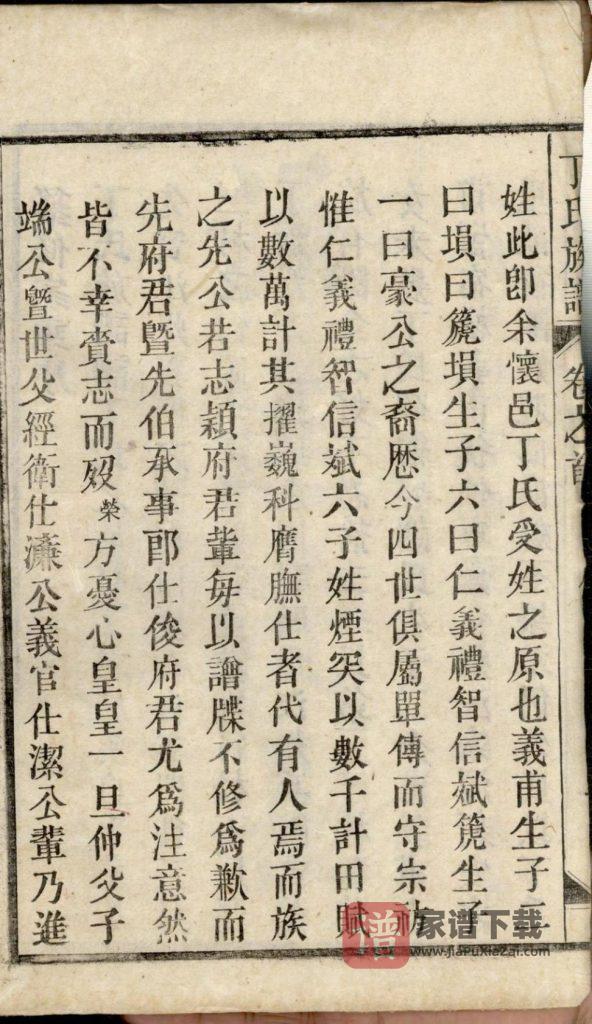 丁氏族譜 卷之首
姓此卽余懷邑丁氏受姓之原也義甫生子二
曰塤曰箎塤生子六曰仁義禮智信斌箎生子
一曰豪公之裔歷今四世俱屬單傳而守宗祊
惟仁義禮智信斌六子姓煙突以數千計田賦
以數萬計其擢巍科膺膴仕者代有人焉而族
之先公若志穎府君輩每以譜牒不修爲歉而
先府君暨先伯承事郎仕俊府君尤爲注意然
皆不幸賫志而歿榮方憂心皇皇一旦仲父子
端公暨世父經衛仕濂公義官仕潔公輩乃進
譜 家谱下载
www.jiaPuxiazai.com